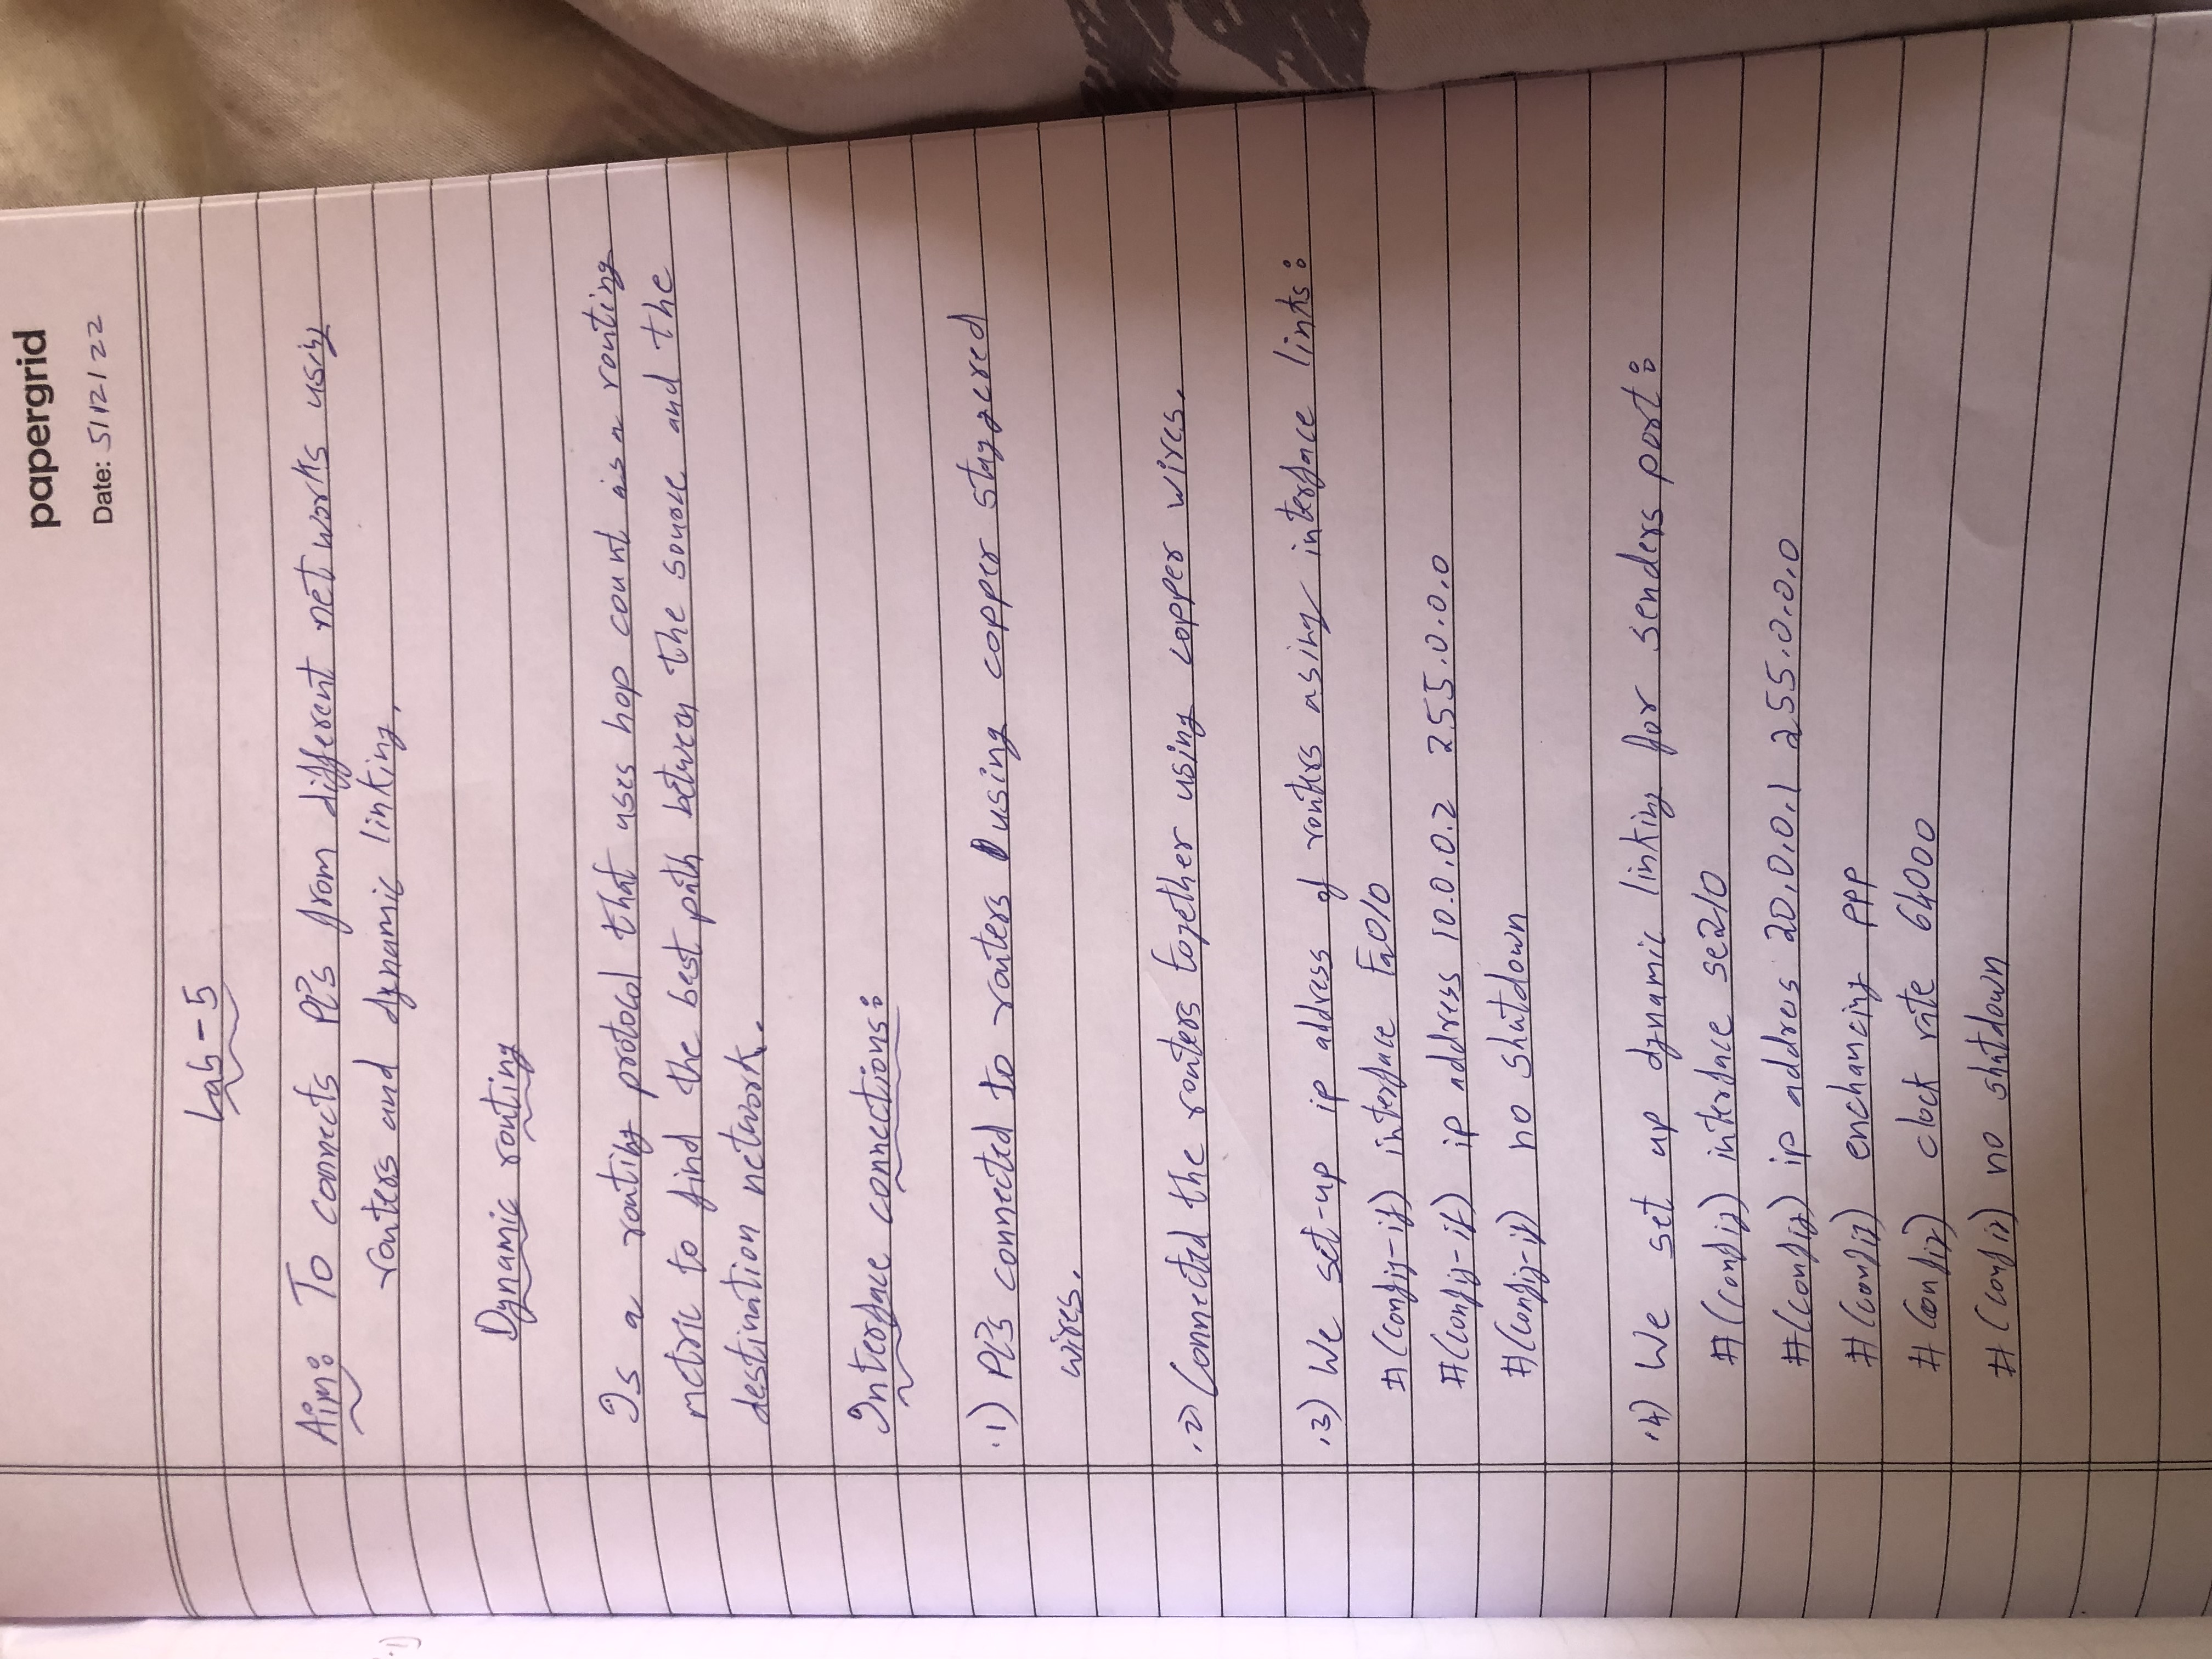 papergrid
Date: 5/12/22
Lab-5
Aim: To connects PC's from different networks using
routers and dynamic linking.
Dynamic routing
Is a routing protocol that uses hop count as a routing
metric to find the best path between the source and the
destination network.
Interface connections:
.1) PC's connected to routers using copper staggered
wires.
.2) Connected the routers together using copper wires.
.3) We set-up ip address of routers using interface links:
#(config-if) interface Fa0/0
#(config-if) ip address 10.0.0.2 255.0.0.0
#(config-if) no shutdown
.4) We set up dynamic linking for senders port:
#(config) interface se2/0
#(config) ip address 20.0.0.1 255.0.0.0
#(config) enchancing ppp
#(config) clock rate 64000
#(config) no shutdown